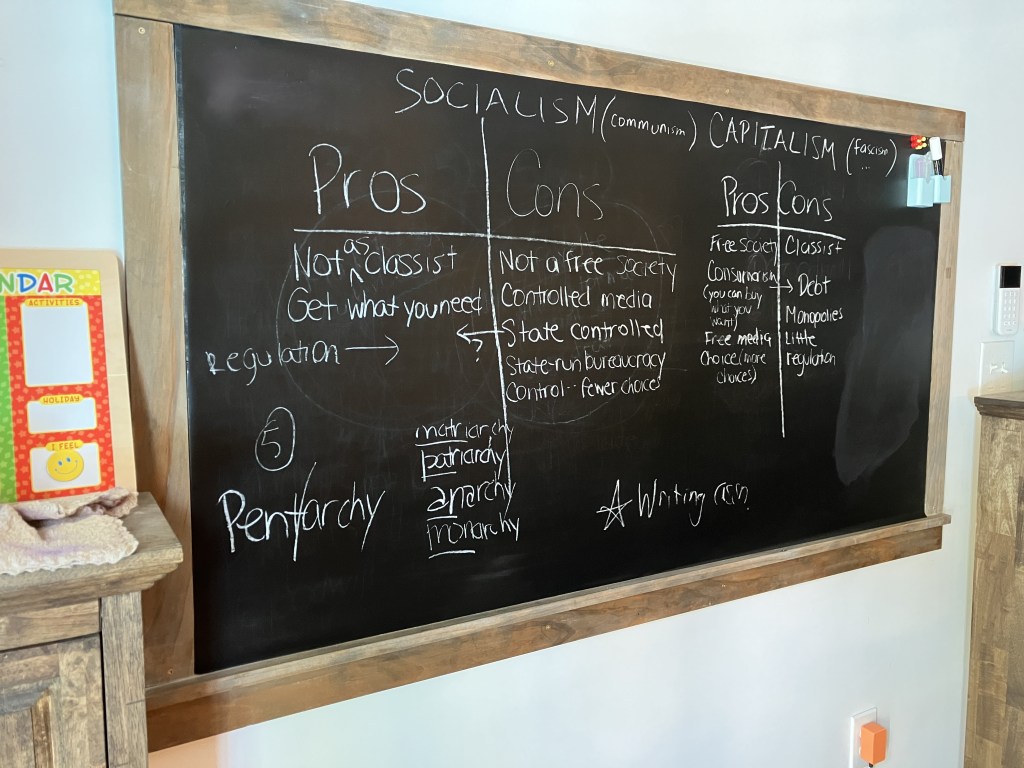 SOCIALISM (communism)
Pros
Cons
Not as classist
Get what you need
Regulation →
Not a free society
Controlled media
← State controlled
?
State-run bureaucracy
Control -- fewer choices
CAPITALISM (fascism
...)
Pros
Cons
Free society
Consumerism →
(you can buy
what you
want)
Free media
Choice (more
choices)
Classist
Debt
Monopolies
Little
regulation
5
Pent/archy
matriarchy
patriarchy
anarchy
monarchy
☆ Writing
NDAR
ACTIVITIES
HOLIDAY
I FEEL